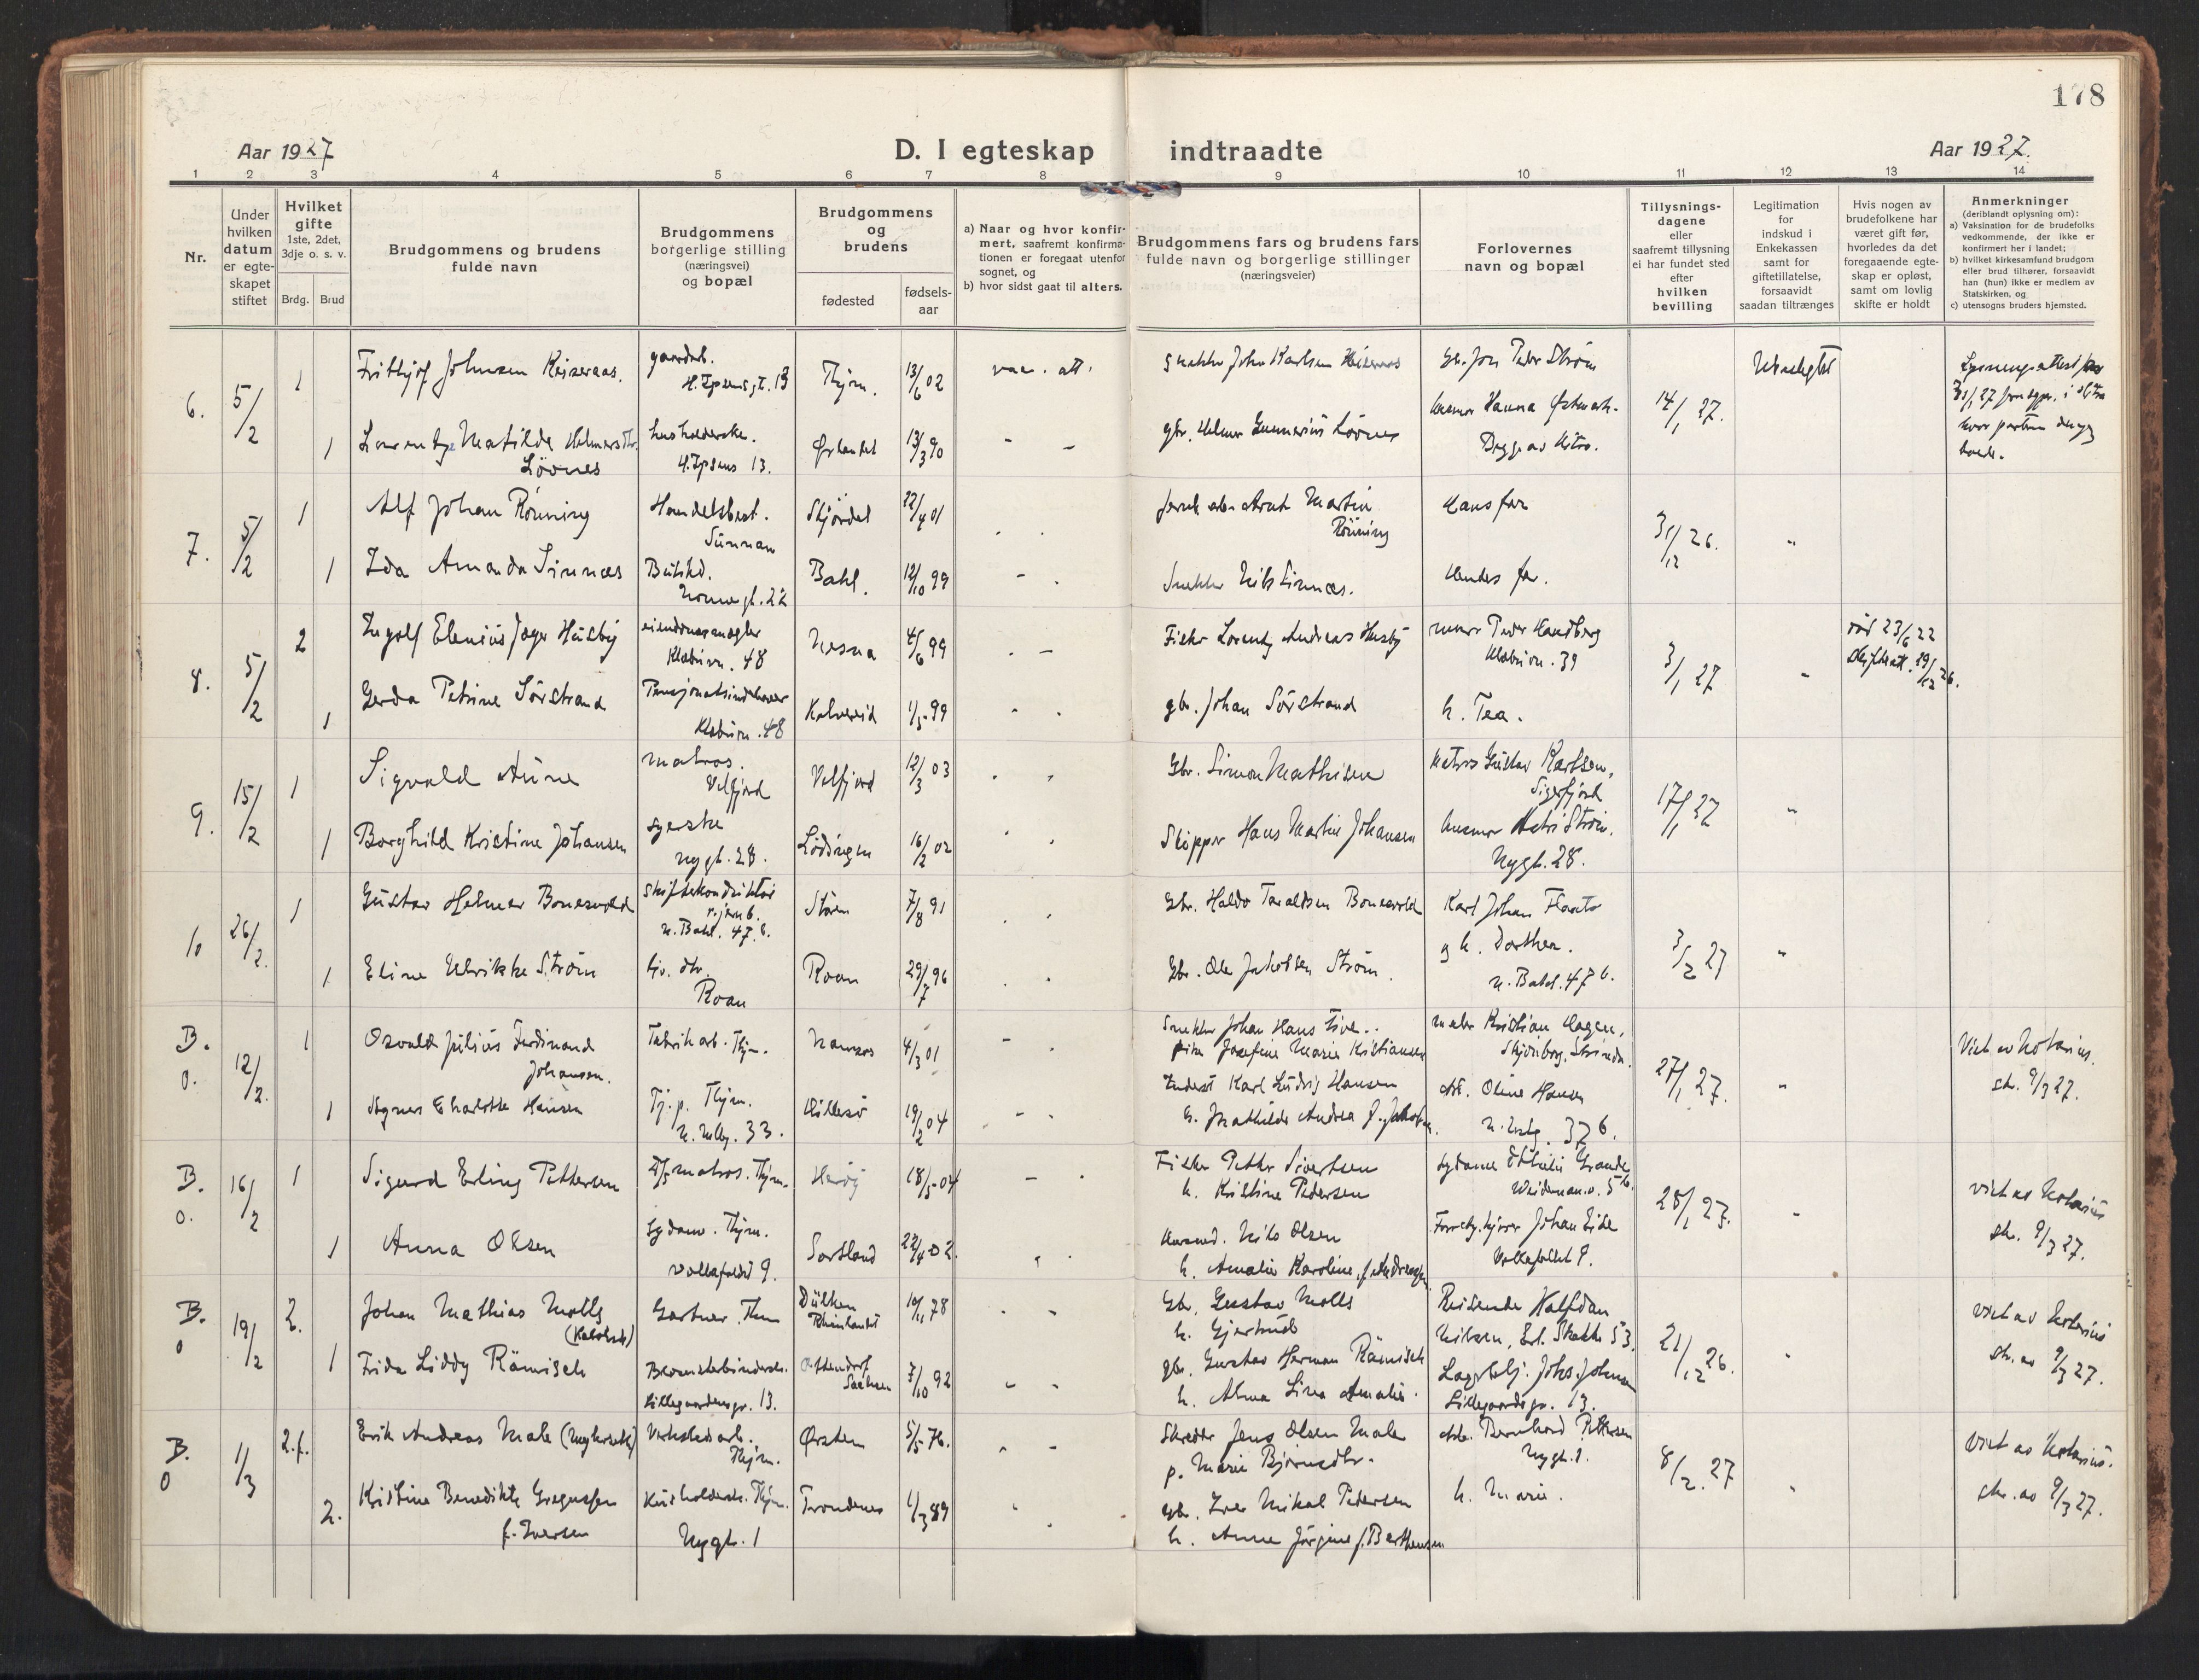 178
Aar 1927
D. I egteskap
indtraadte
Aar 1927.
1 2 3 4 5 6 7 8 9 10 11 12 13 14
Nr.
Under
hvilken
datum
er egte-
skapet
stiftet
Hvilket
gifte
1ste, 2det,
3dje o. s. v.
Brdg. Brud
Brudgommens og brudens
fulde navn
Brudgommens
borgerlige stilling
(næringsvei)
og bopæl
Brudgommens
og
brudens
fødested
fødsels-
aar
a) Naar og hvor konfir-
mert, saafremt konfirma-
tionen er foregaat utenfor
sognet, og
b) hvor sidst gaat til alters.
Brudgommens fars og brudens fars
fulde navn og borgerlige stillinger
(næringsveier)
Forlovernes
navn og bopæl
Tillysnings-
dagene
eller
saafremt tillysning
ei har fundet sted
efter
hvilken
bevilling
Legitimation
for
indskud i
Enkekassen
samt for
giftetillatelse,
forsaavidt
saadan tiltrænges
Hvis nogen av
brudefolkene har
været gift før,
hvorledes da det
foregaaende egte-
skap er opløst,
samt om lovlig
skifte er holdt
Anmerkninger
(deriblandt oplysning om):
a) Vaksination for de brudefolks
vedkommende, der ikke er
konfirmert her i landet;
b) hvilket kirkesamfund brudgom
eller brud tilhører, forsaavidt
han (hun) ikke er medlem av
Statskirken, og
c) utensogns bruders hjemsted.
6. 5/2
1 Frithjof Johnsen Reiseraas.
H. Ipsensgt. 13
Thjm. 13/6 02
vac. att.
Snekker John Karlsen
Jon Peder Strøm
14/1 27.
1 Matilde Helmersdtr.
Lövnes
husholderske.
H. Ipsens 13.
Ørlandet 13/3 90
gbr. Helmer Gunnerius Lövnes
Hanna Østmark.
Begge av Nitro.
7. 5/2
1 Alf Johan Rönning
Handelsbest.
Sunnan
Skjördal 22/4 01
Martin
Rönning
Hans far
31/12 26.
1 Ida Amanda Sinnes
Butikd.
22
Bakl. 12/10 99
Snekker Nils Sinnes.
Hendes far.
8. 5/2
2 Ingolf Elenius Jæger Husby
eiendomsmægler
Klæbuv. 48
Nesna 4/6 99
Fisker Lorentz Andreas Husby
murer Peder Handberg
Klæbuv. 39
3/1 27
23/6 22
Skifteatt. 29/12 26.
1 Gerda Petrine Sörstrand
Pensjonatsindehaver
Klæbuv. 48
Kolvereid 1/5 99
gbr. Johan Sörstrand
h. Tea.
9. 15/2
1 Sigvald Aune
matros.
Velfjord
Velfjord 12/3 03
Gbr. Simon Mathisen
Matros Gustav Karlsen,
Sigerfjord
17/1 27
1 Borghild Kristine Johansen
syerske
Nygt. 28.
Lödingen 16/2 02
Skipper Hans Martin Johansen
Nygt. 28.
10 26/2.
1 Gustav Helmer Bonesvold
skiftekonduktör
n. Bakl. 47 b.
Stören 7/8 91
Gbr. Haldo Taraldsen Bonesvold
Karl Johan Flaato
3/2 27
1 Eline Ulrikke Ström
Roan
Roan 29/7 96
Gbr. Ole Jakobsen Ström.
g h. Dorthea.
n. Bakl. 47 b.
B. O. 12/2.
1 Osvald Julius Ferdinand
Johansen.
Fabrikarb. Thjm.
Namsos 4/3 01
Snekker Johan Hans
pike Josefine Marie Kristiansen
maler Kristian Hagen,
Skjönborg, Strinda.
27/1 27.
Viet av Notarius.
9/3 27.
1 Agnes Charlotte Hansen
Tj. p. Thjm.
33.
Hillesö 19/2 04
Karl Ludvig Hansen
h. Mathilde Andrea f. Jakobsen.
Oline Hansen
37 b.
B. O. 16/2
1 Sigurd Erling Pettersen
matros. Thjm.
Heröy 18/5 04
Fisker Petter Sivertsen
h. Kristine Pedersen
sydame Othilie Grande
Weideman. v. 5 b.
28/1 27.
viet av Notarius
9/3 27.
1 Anna Olsen
Sydame. Thjm.
Vollafaldet 9.
Sortland 22/4 02.
Nils Olsen
h. Amalie Karoline, f. Andreassen
Johan Eide
Vollafaldet 9.
B. O 19/2
2. Johan Mathias Molls
(Katolsk)
Gartner. Thm
Dülken
Rheinlandet 10/11 78
Gbr. Gustav Molls
h. Gjertrud
Reisende Halfdan
Nilsen, Erl. Skakkes 53.
21/12 26.
viet av Notarius
9/3 27.
1 Frida Liddy Rämisch
Blomsterbinderske.
Lillegaardensgr. 13.
Ottendorf
Sachsen 7/10 92
gbr. Gustav Herman Rämisch
h. Alma Lina Amalie.
Johs. Johnsen
Lillegaardsgr. 13.
B. O 1/3
2. f. Erik Andreas Male
Verkstedsarb.
Thjm.
Ørsten 5/5 76.
Skredder Jens Olsen Male
p. Marie Björnsdtr.
Bernhard Pettersen
Nygt. 1.
8/2. 27
Viet av Notarius.
9/3 27.
2. Kristine Benedikte Gregussen
f. Iversen
Husholdersk. Thjm.
Nygt. 1
Trondenes 1/3 89
gbr. Iver Mikal Pedersen
h. Anne Jörgine f. Berthensen
h. Marie.